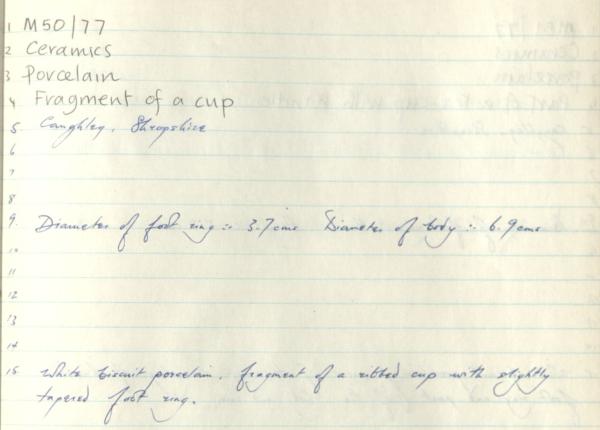 1 M50/77
2 Ceramics
3 Porcelain
4 Fragment of a cup
5 Caughley, Shropshire
6
7
8
9. Diameter of foot ring :- 3.7cms Diameter of body :- 6.9cms
10
11
12
13
14
15 White biscuit porcelain. fragment of a ribbed cup with slightly
tapered foot ring.